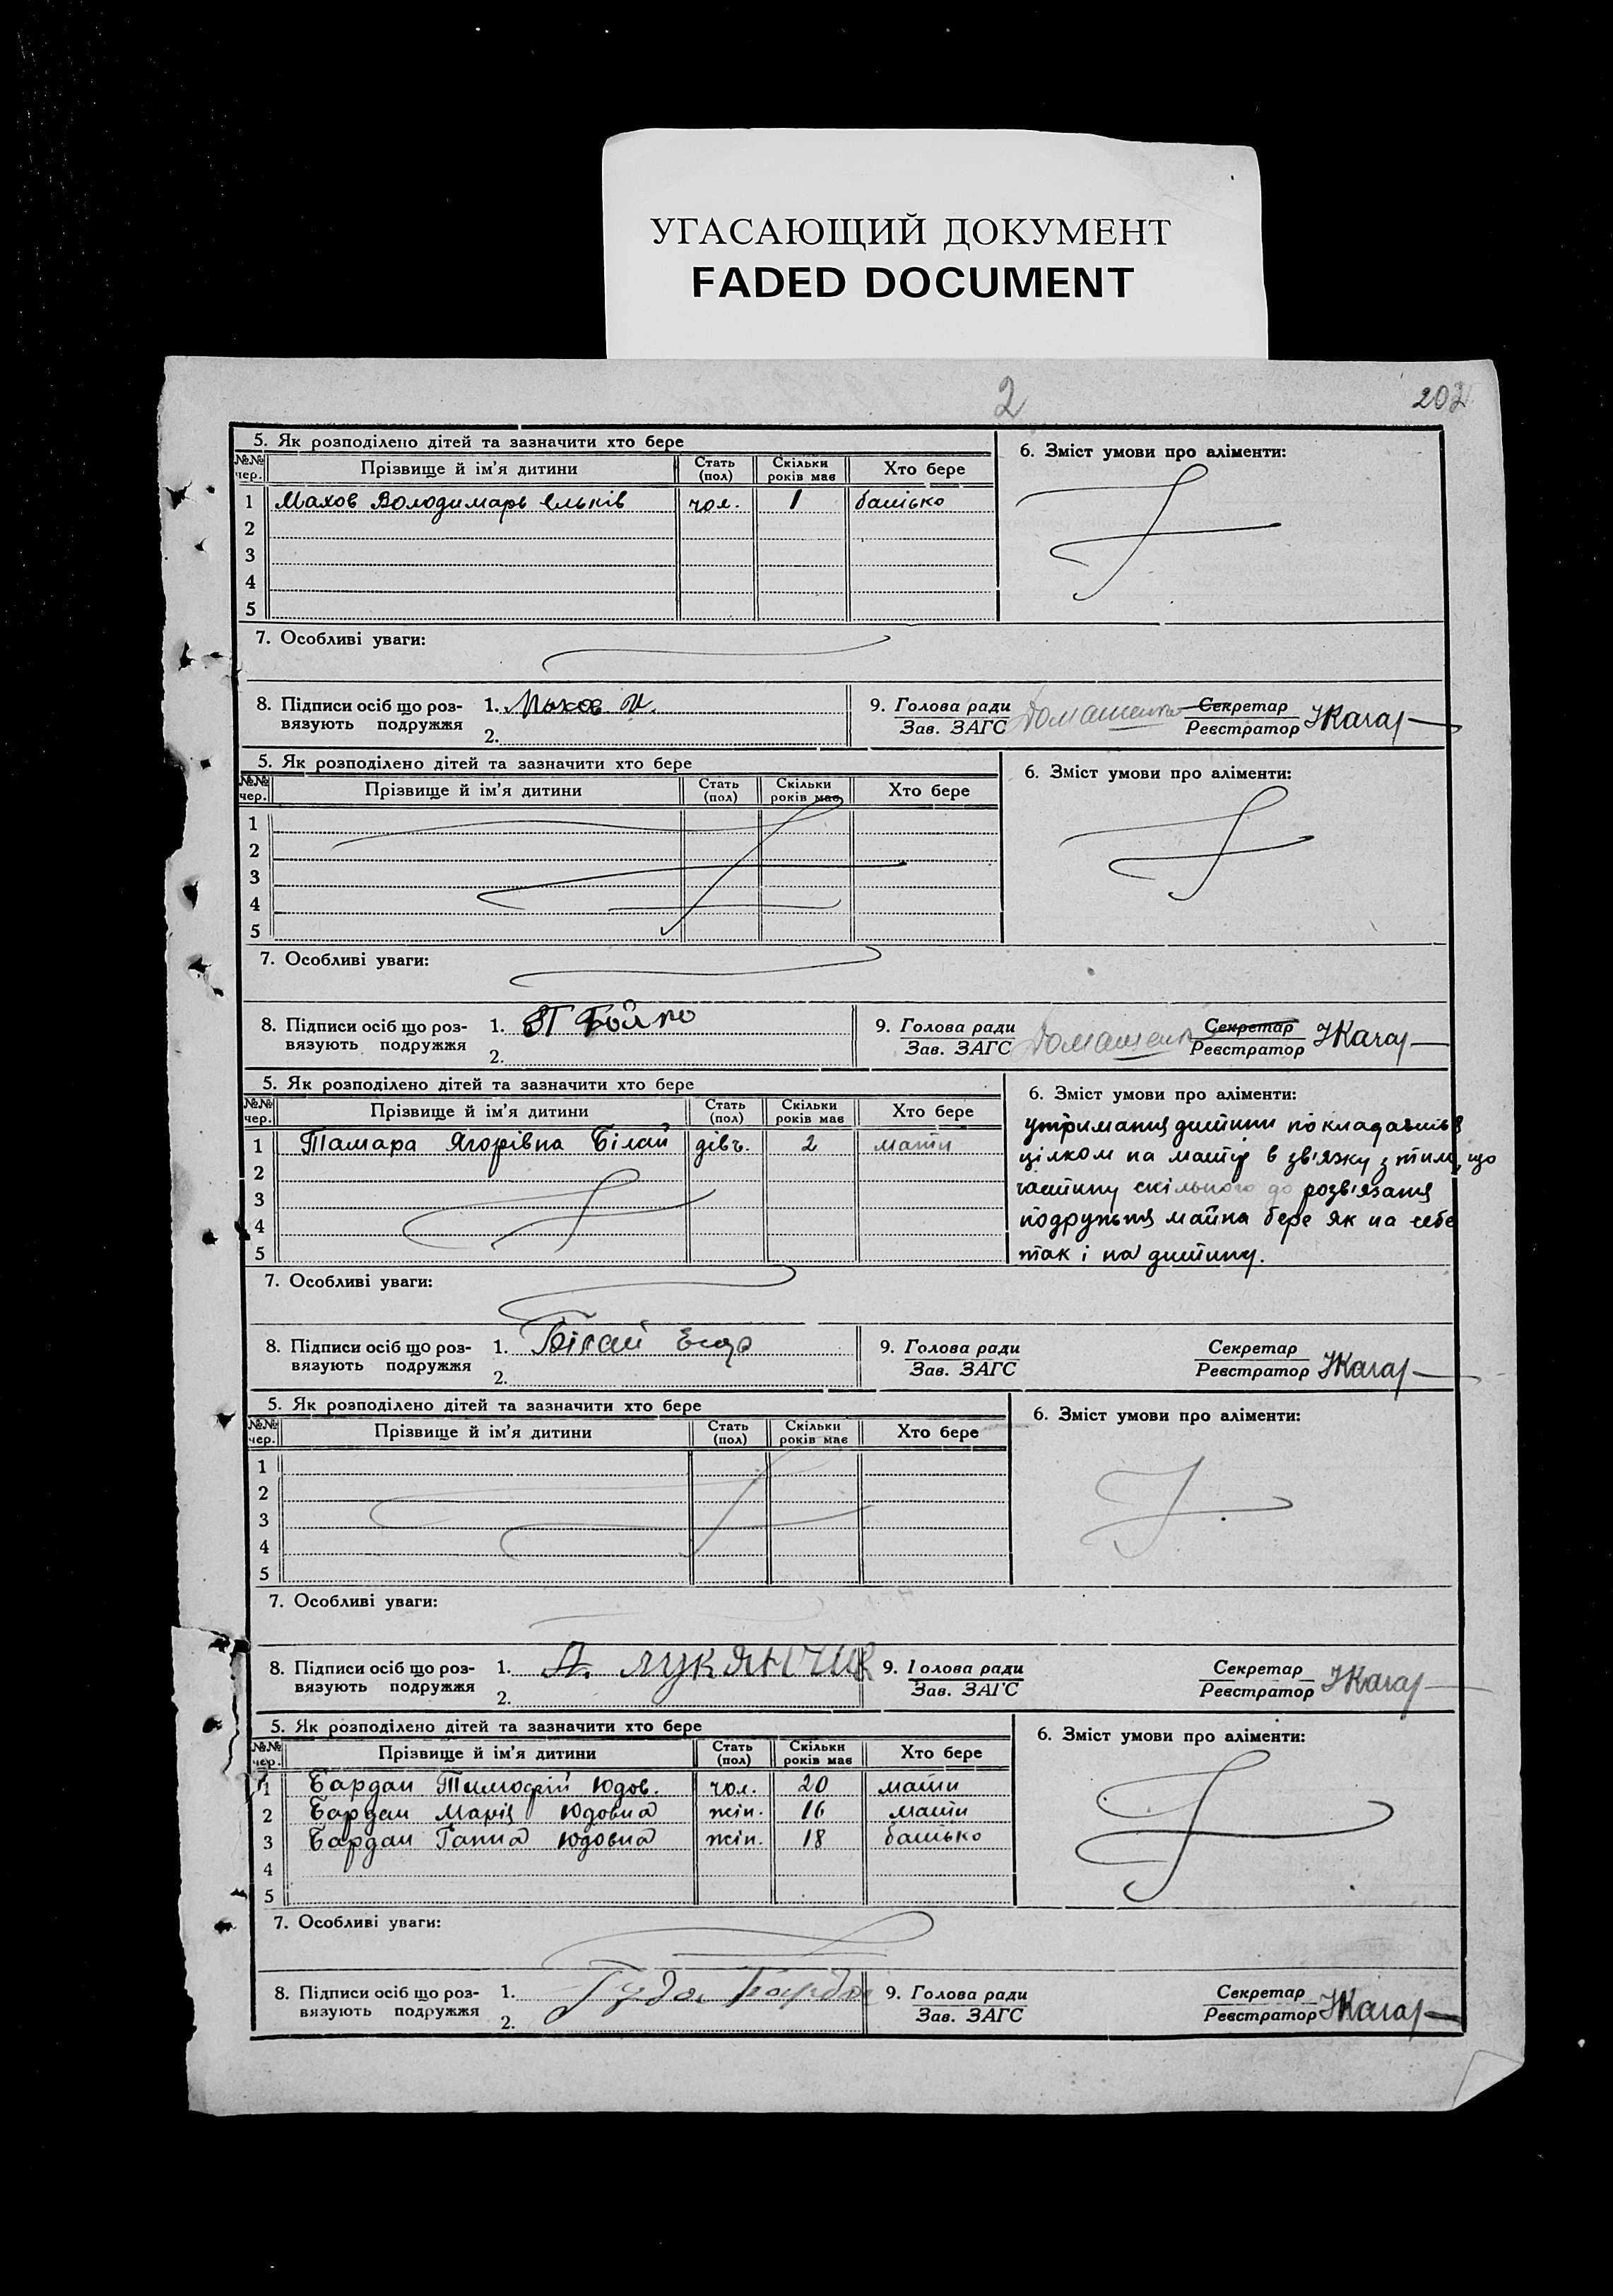 УГАСАЮЩИЙ ДОКУМЕНТ
FADED DOCUMENT
2
202
5. Як розподілено дітей та зазначити хто бере
6. Зміст умови про аліменти:
№№ чер. Прізвище й ім'я дитини Стать (пол) Скільки років має Хто бере
1 Махов Володимарь чол. 1 батько
2
3
4
5
7. Особливі уваги:
8. Підписи осіб що роз- 1. Махов 9. Голова ради Домашенко Секретар
вязують подружжя 2. Зав. ЗАГС Реєстратор
5. Як розподілено дітей та зазначити хто бере
6. Зміст умови про аліменти:
№№ чер. Прізвище й ім'я дитини Стать (пол) Скільки років має Хто бере
1
2
3
4
5
7. Особливі уваги:
8. Підписи осіб що роз- 1. Бойко 9. Голова ради Домашенко Секретар
вязують подружжя 2. Зав. ЗАГС Реєстратор
5. Як розподілено дітей та зазначити хто бере
6. Зміст умови про аліменти:
№№ чер. Прізвище й ім'я дитини Стать (пол) Скільки років має Хто бере
1 Тамара Ягорівна Білай дівч. 2 мати
2
3
4
5
утриманя дитини покладається
цілком на матір в зв'язку з тим, що
частину спільного до розв'язаня
подружжя майна бере як на себе
так і на дитину.
7. Особливі уваги:
8. Підписи осіб що роз- 1. Білай 9. Голова ради Секретар
вязують подружжя 2. Зав. ЗАГС Реєстратор
5. Як розподілено дітей та зазначити хто бере
6. Зміст умови про аліменти:
№№ чер. Прізвище й ім'я дитини Стать (пол) Скільки років має Хто бере
1
2
3
4
5
7. Особливі уваги:
8. Підписи осіб що роз- 1. Л. Лукянчик 9. Голова ради Секретар
вязують подружжя 2. Зав. ЗАГС Реєстратор
5. Як розподілено дітей та зазначити хто бере
6. Зміст умови про аліменти:
№№ чер. Прізвище й ім'я дитини Стать (пол) Скільки років має Хто бере
1 Бардаш Тимофій Юдов. чол. 20 мати
2 Бардаш Марія Юдовна жін. 16 мати
3 Бардаш Ганна Юдовна жін. 18 батько
4
5
7. Особливі уваги:
8. Підписи осіб що роз- 1. 9. Голова ради Секретар
вязують подружжя 2. Зав. ЗАГС Реєстратор